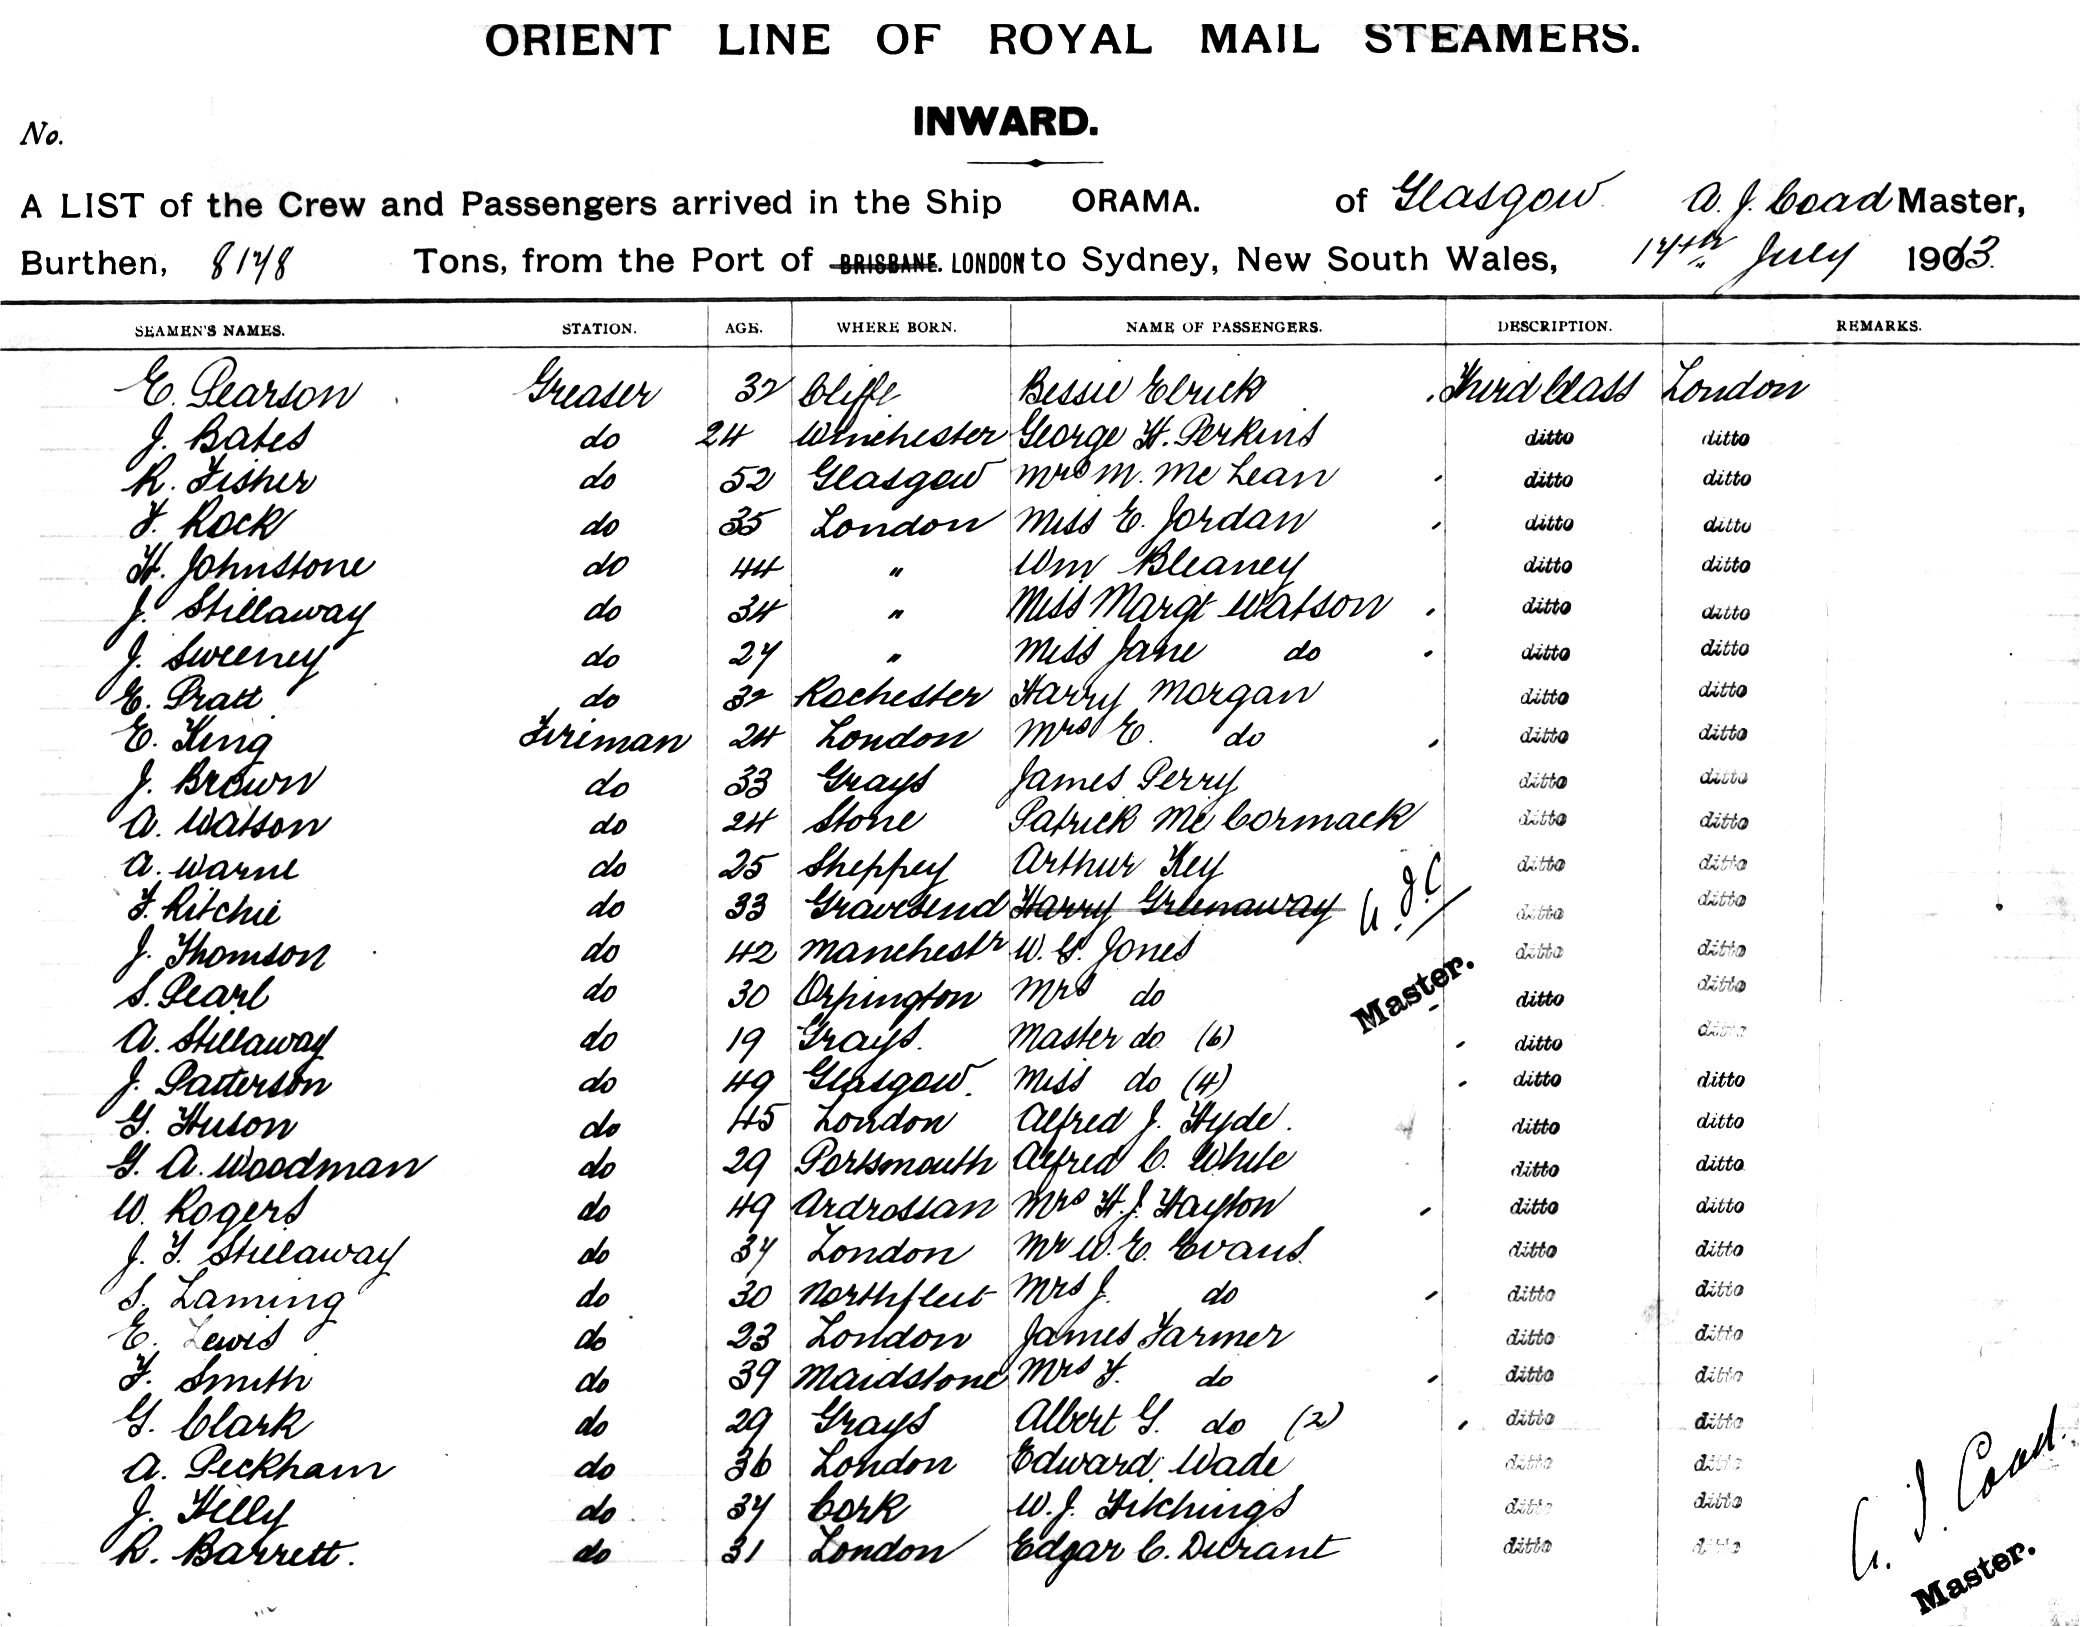 ORIENT LINE OF ROYAL MAIL STEAMERS.
INWARD.
No.
A LIST of the Crew and Passengers arrived in the Ship ORAMA. of Glasgow A. J. Coad Master,
Burthen, 8178 Tons, from the Port of BRISBANE. LONDON to Sydney, New South Wales, 17th July 1913.
SEAMEN'S NAMES. STATION. AGE. WHERE BORN. NAME OF PASSENGERS. DESCRIPTION. REMARKS.
E. Pearson Greaser 32 Cliffe Bessie Elrick Third Class London
J. Bates do 24 Winchester George H. Perkins ditto ditto
R. Fisher do 52 Glasgow Mrs M. McLean ditto ditto
F. Rock do 35 London Miss E. Jordan ditto ditto
H. Johnstone do 44 " Wm Bleaney ditto ditto
J. Stillaway do 34 " Miss Margt Watson ditto ditto
J. Sweeney do 27 " Miss Jane do ditto ditto
E. Pratt do 32 Rochester Harry Morgan ditto ditto
E. King Fireman 24 London Mrs E. do ditto ditto
J. Brown do 33 Grays James Perry ditto ditto
A. Watson do 24 Stone Patrick McCormack ditto ditto
A. Warne do 25 Sheppey Arthur Key ditto ditto
F. Ritchie do 33 Gravesend Harry Greenaway A. J. C. ditto ditto
J. Thomson do 42 Manchestr W. G. Jones ditto ditto
S. Pearl do 30 Orpington Mrs do Master. ditto ditto
A. Stillaway do 19 Grays. Master do (6) ditto ditto
J. Patterson do 49 Glasgow. Miss do (4) ditto ditto
G. Huson do 45 London Alfred J. Hyde. ditto ditto
G. A. Woodman do 29 Portsmouth Alfred C. White ditto ditto
W. Rogers do 49 Ardrossan Mrs H. J. Hayton ditto ditto
J. F. Stillaway do 37 London Mr W. E. Evans. ditto ditto
S. Laming do 30 Northfleet Mrs J. do ditto ditto
E. Lewis do 23 London James Farmer ditto ditto
F. Smith do 39 Maidstone Mrs F. do ditto ditto
G. Clark do 29 Grays Albert G. do (2) ditto ditto
A. Peckham do 36 London Edward Wade ditto ditto
J. Hilly do 37 Cork W. J. Hitchings ditto ditto
R. Barrett. do 31 London Edgar C. Durant ditto ditto
A. J. Coad.
Master.